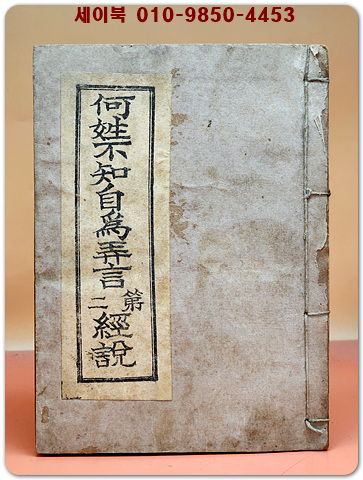 세이북 010-9850-4453
何姓不知自爲弄言
第二
經說